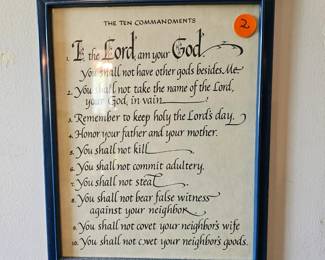 THE TEN COMMANDMENTS
2
1. I, the Lord, am your God.
You shall not have other gods besides Me.
2. You shall not take the name of the Lord,
your God, in vain.
3. Remember to keep holy the Lord's day.
4. Honor your father and your mother.
5. You shall not kill.
6. You shall not commit adultery.
7. You shall not steal.
8. You shall not bear false witness
against your neighbor.
9. You shall not covet your neighbor's wife
10. You shall not covet your neighbor's goods.